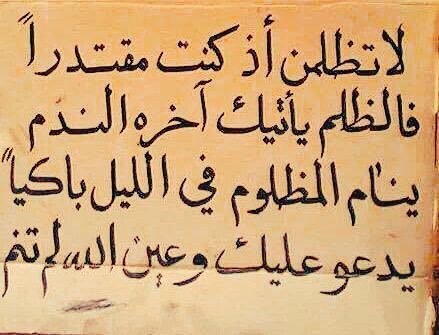 لا تظلمن أذ كنت مقتدراً
فالظلم يأتيك آخره الندم
ينام المظلوم في الليل باكياً
يدعو عليك وعين الله لم تنم